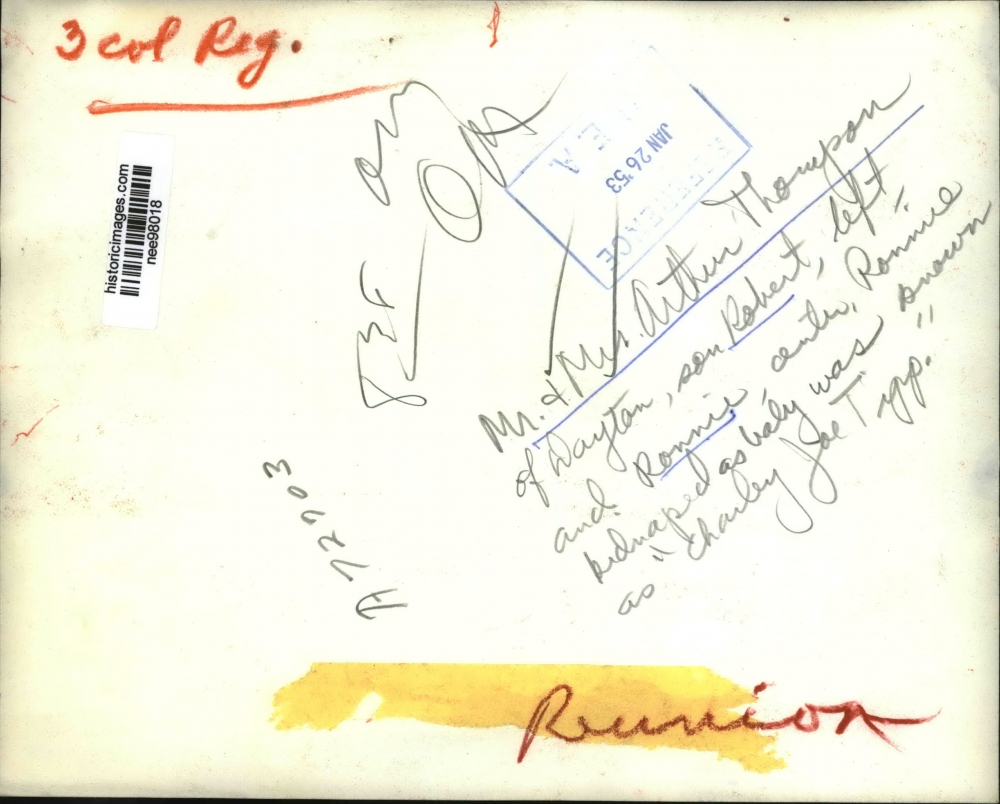 3 col Reg.
historicimages.com
nee98018
N E A
JAN 26 53
REFERENCE
Mr. & Mrs. Arthur Thompson
of Dayton, son Robert, left
and Ronnie center, Ronnie
kidnaped as baby was known
as "Charley Joe Tipp."
A72903
Reunion